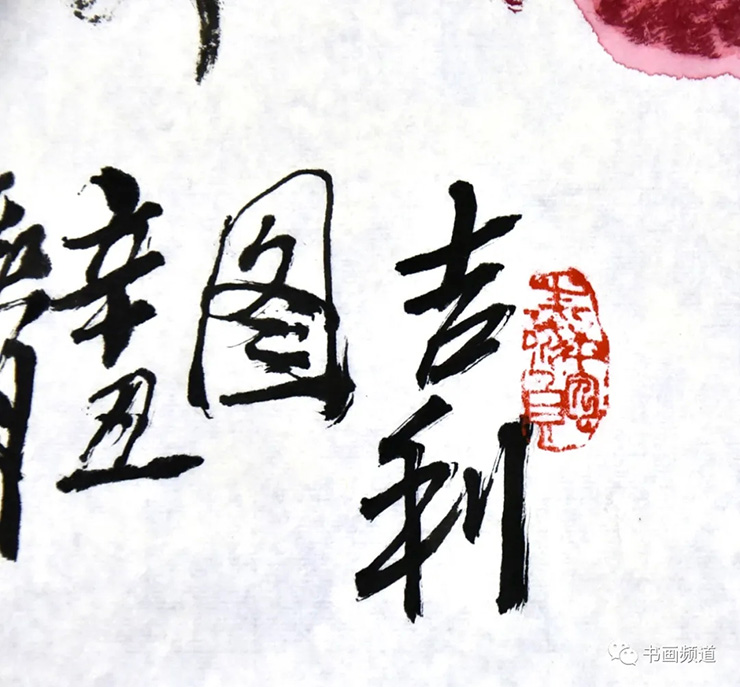 吉利
图
辛丑
书画频道